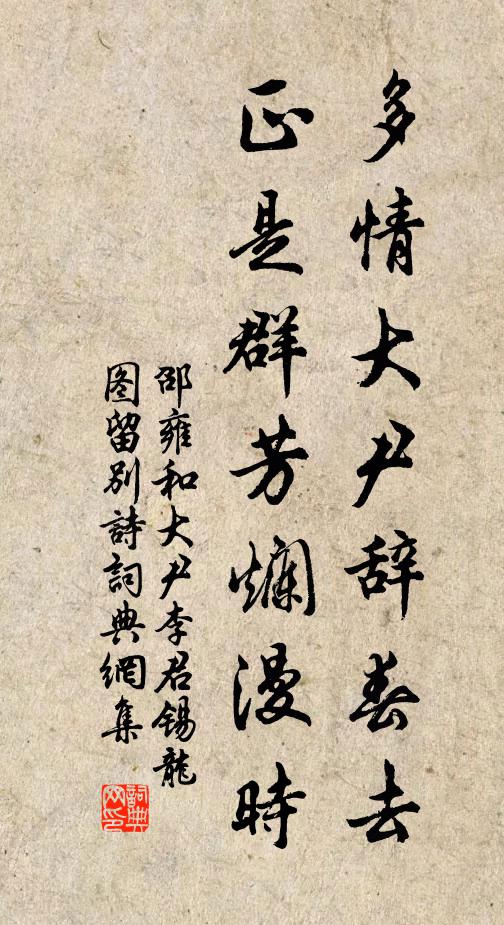 多情大尹辞春去
正是群芳爛漫時
邵雍和大尹李君锡龍
图留别詩詞典網集
詞典
网印